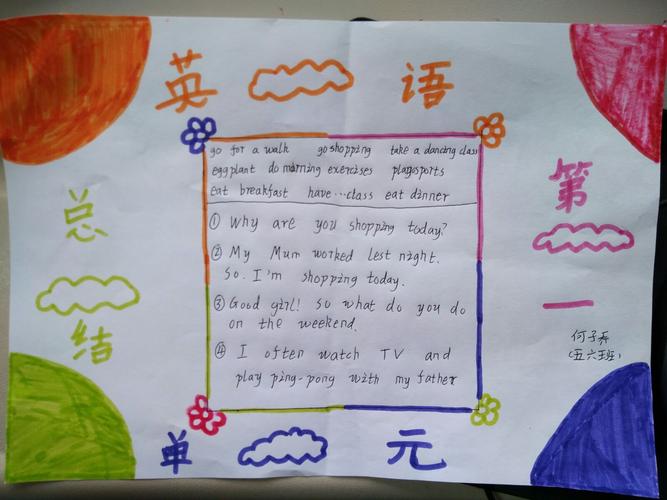 英 语
go for a walk go shopping take a dancing class
eggplant do morning exercises playsports
eat breakfast have...class eat dinner
① Why are you shopping today?
② My Mum worked lest night.
So. I'm shopping today.
③ Good girl! So what do you do
on the weekend.
④ I often watch TV and
play ping-pong with my father
总
结
第
一
何子
(五六班)
单 元